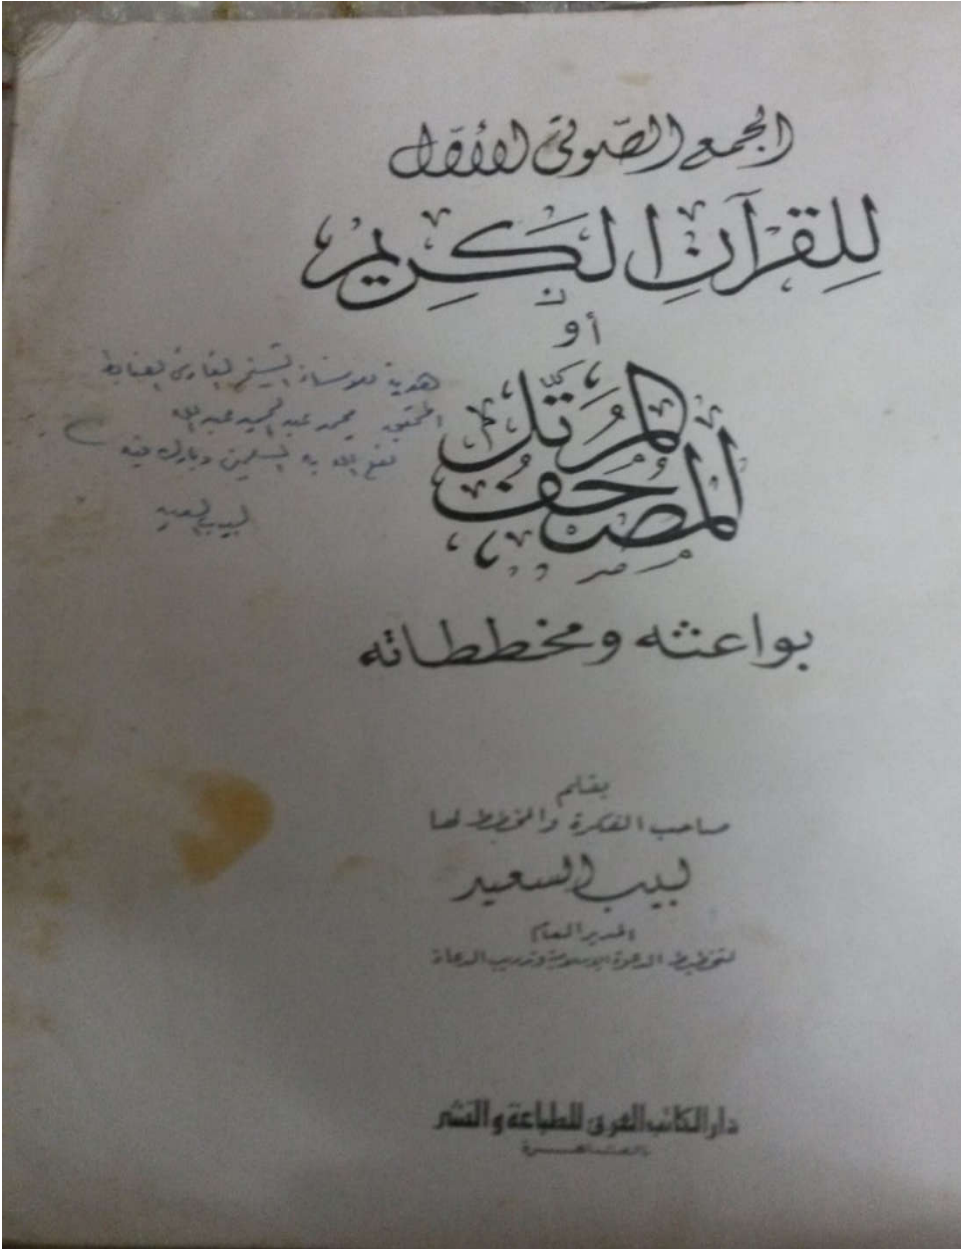 الجمع الصوتي الأول
للقرآن الكريم
أو
المصحف المرتل
هدية للأستاذ الشيخ القارئ الضابط
المحقق محمد عبد الحميد عبد الله
نفع الله به المسلمين وبارك فيه
لبيب السعيد
بواعثه ومخططاته
بقلم
صاحب الفكرة والمخطط لها
لبيب السعيد
المدير العام
لتخطيط الدعوة الإسلامية وتدريب الدعاة
دار الكاتب العربي للطباعة والنشر
بالقاهرة